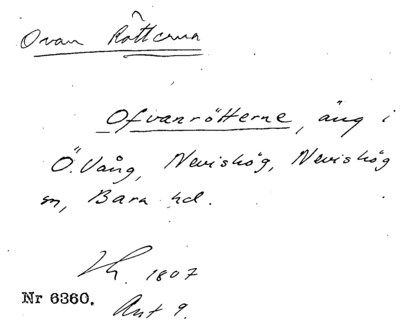 Ovan Rötterna
Ofvanrötterne, äng i
Ö. Vång, Nevishög, Nevishög
sn, Bara hd.
1807
Nr 6360.
Akt 9.